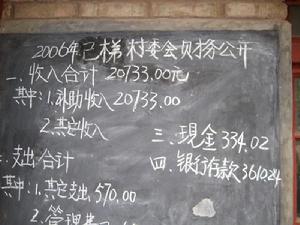 2006年己梯村委会财务公开
一、收入合计 20733.00元
其中:1.补助收入20733.00
2.其它收入
二、支出合计
其中:1.其它支出,570.00
2.管理费
三、现金334.02
四、银行存款361024